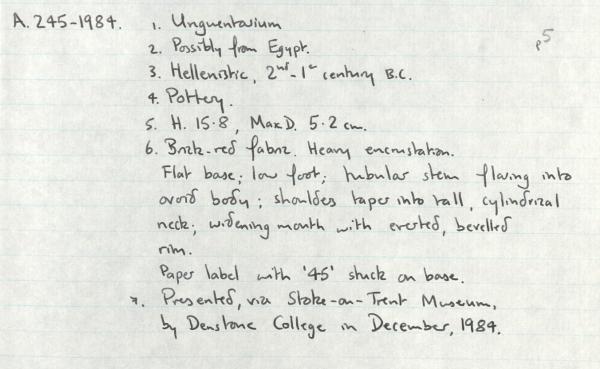 A. 245-1984. 1. Unguentarium
p5
2. Possibly from Egypt.
3. Hellenistic, 2nd-1st century B.C.
4. Pottery.
5. H. 15.8, Max D. 5.2 cm.
6. Brick-red fabric. Heavy encrustation.
Flat base; low foot; tubular stem flaring into
ovoid body; shoulder tapers into tall, cylindrical
neck; widening mouth with everted, bevelled
rim.
Paper label with '45' stuck on base.
7. Presented, via Stoke-on-Trent Museum,
by Denstone College in December, 1984.